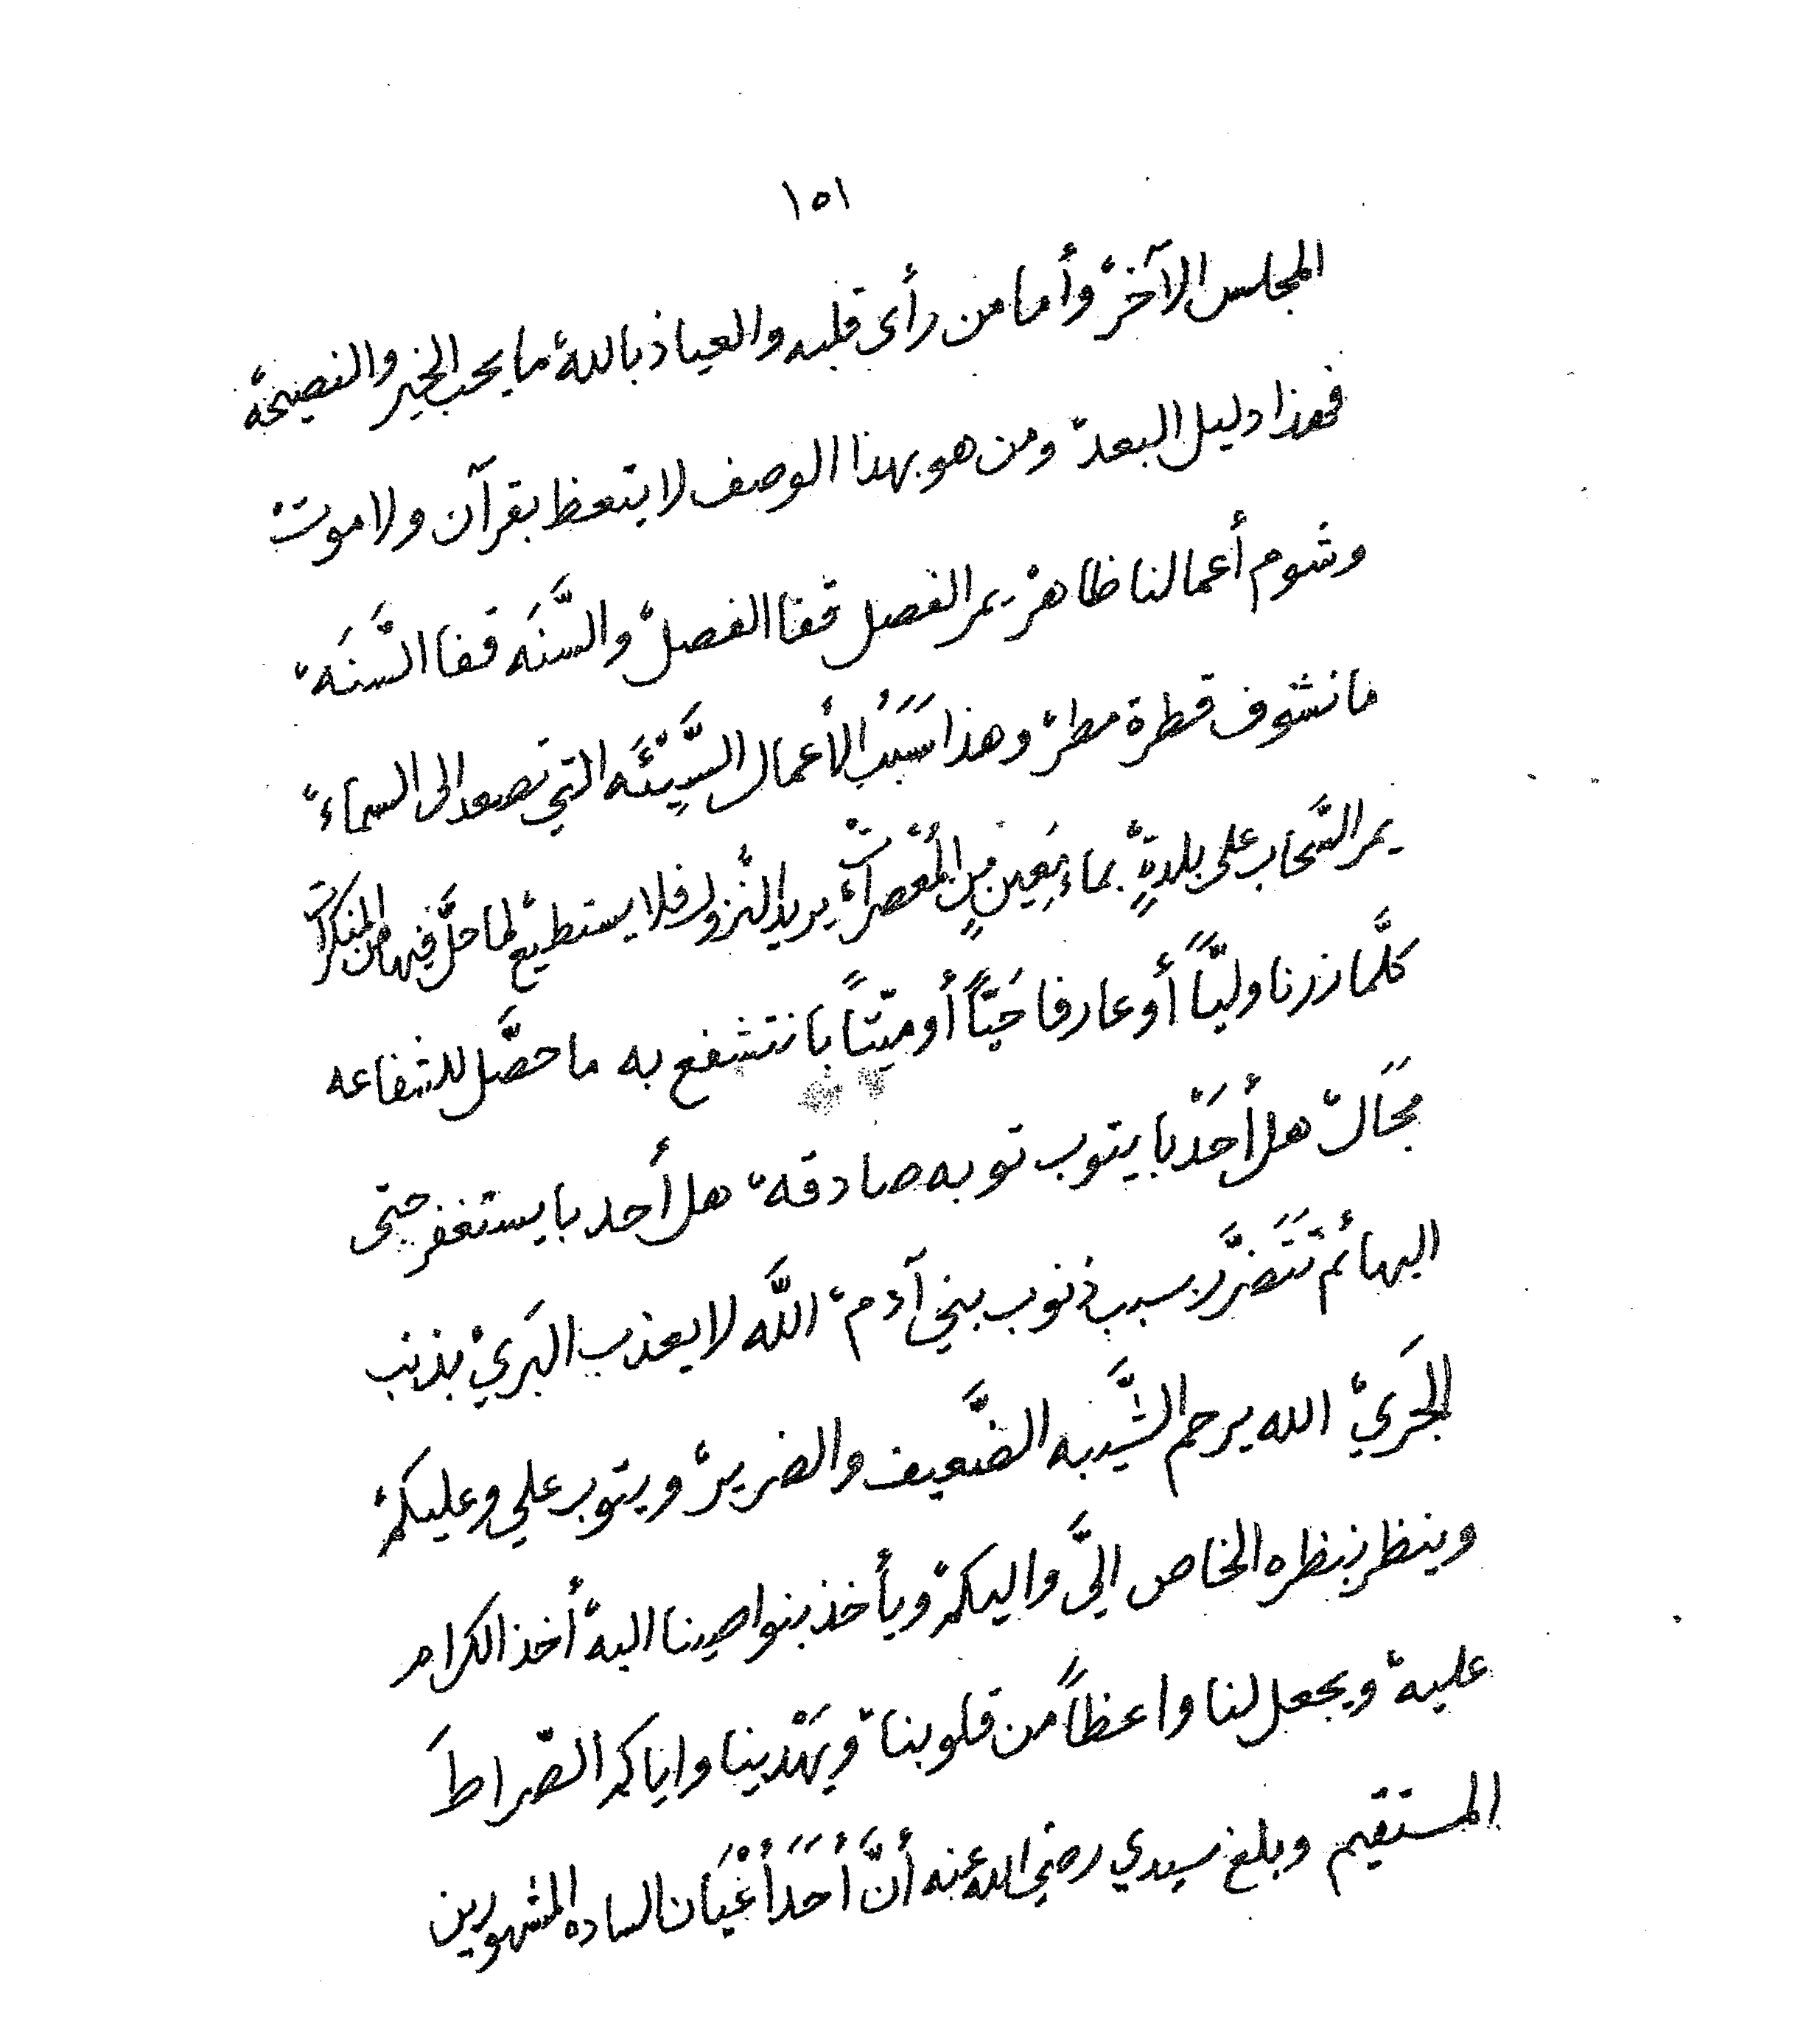 ١٥١
المجلس الآخر، وأما من رأى قلبه والعياذ بالله، ما يحب الخير والنصيحة،
فهذا دليل البعد، ومن هو بهذا الوصف لا يتعظ بقرآن ولا موت،
وشوم أعمالنا ظاهر، يمر الفصل قفا الفصل، والسَّنَه قفا السَّنَه،
ما نشوف قطرة مطر، وهذا سَبَبُ الأعمال السَّيِّئَه التي تصعد الى السماء،
يمر السَّحاب على بلدةٍ، بماءٍ مَعِينٍ مِنٍ المُعْصِراتْ، يريد النُّزول فلا يستطيع، لما حلَّ فيها من المنكرات
كلَّما زرنا وليّاً أو عارفا حَيّاً أو ميّتاً با نتشفع به ما حصَّل للشفاعه
مَجَال، هل أحَدْ با يتوب توبه صادقه، هل أحد با يستغفر حتى
البهائم تَتَضرَّر بسبب ذنوب بني آدم، اللَّه لا يعذب البَريْ بذنب
الجَريْ، الله يرحم الشَّيبه الضَّعيف والضرير، ويتوب علي وعليكم،
وينظر بنظره الخاص إليَّ واليكم، ويأخذ بنواصينا اليه، أخذ الكرام
عليه، ويجعل لنا واعظاً من قلوبنا، ويَهْدينا واياكم الصّراطَ
المستقيم وبلغ سيدي رضي الله عنه أنَّ أحَدَ أعْيَان الساده المشهورين